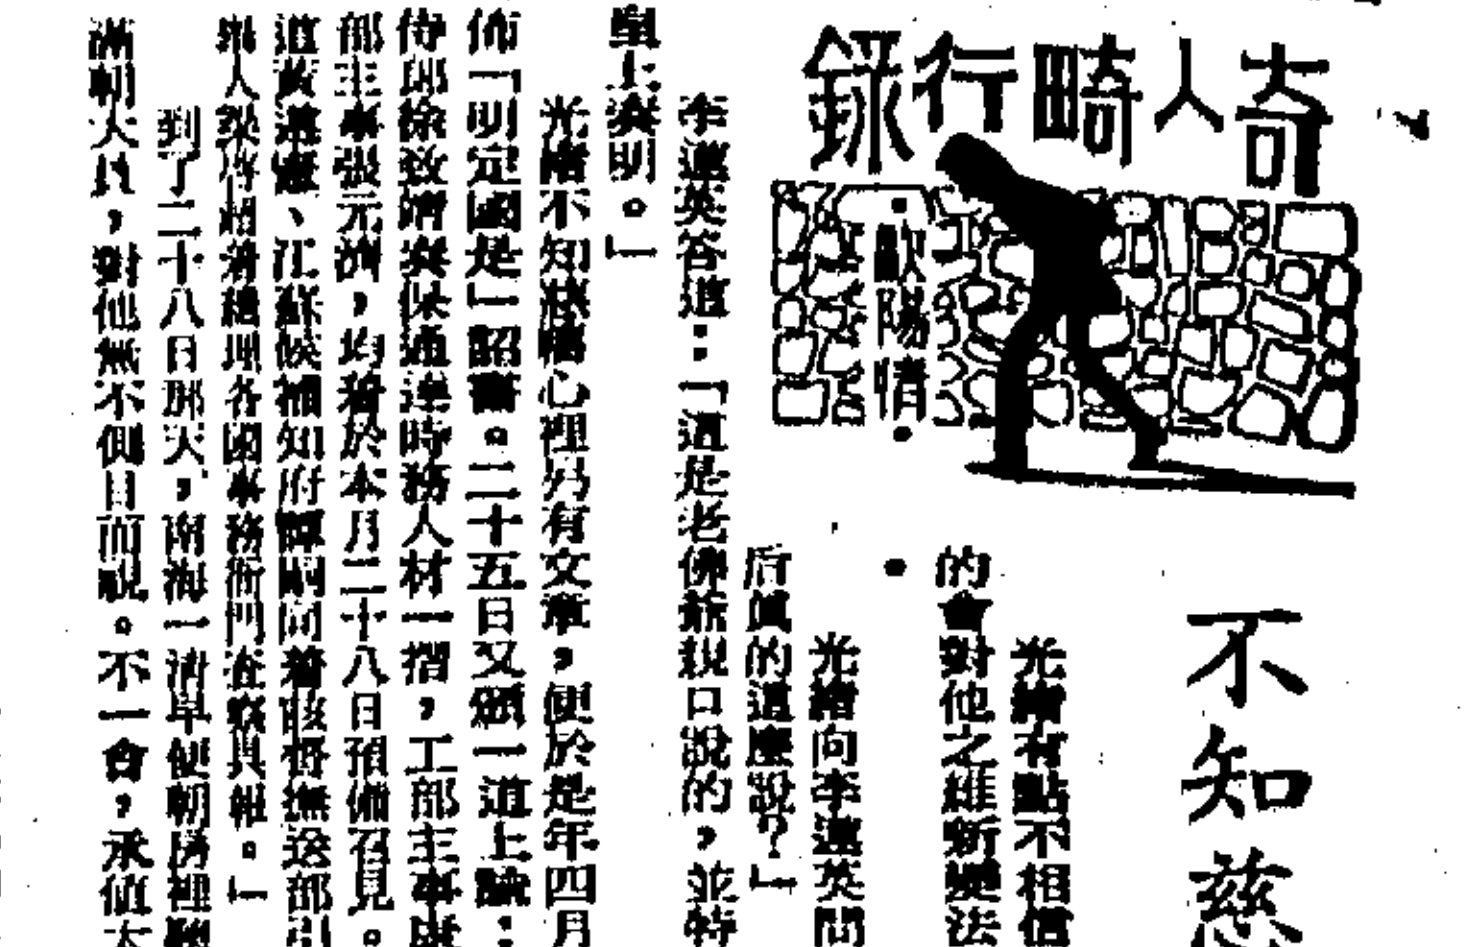 奇人畸行錄
·歐陽情·
不知慈
光緒有點不相信
的會對他之維新變法
。
光緒向李蓮英問
后真的這麼說?」
李蓮英答道:「這是老佛爺親口說的,並特
皇上奏明。」
光緒不知慈禧心裡另有文章,便於是年四月
佈「明定國是」詔書。二十五日又頒一道上諭:
侍郎徐致靖奏保通達時務人材一摺,工部主事康
部主事張元濟,均着於本月二十八日預備召見。
道黃遵憲、江蘇候補知府譚嗣同着該督撫送部引
舉人梁啓超着總理各國事務衙門查察具報。」
到了二十八日那天,南海一清早便朝房裡聽
滿朝大員,對他無不側目而視。不一會,承值太